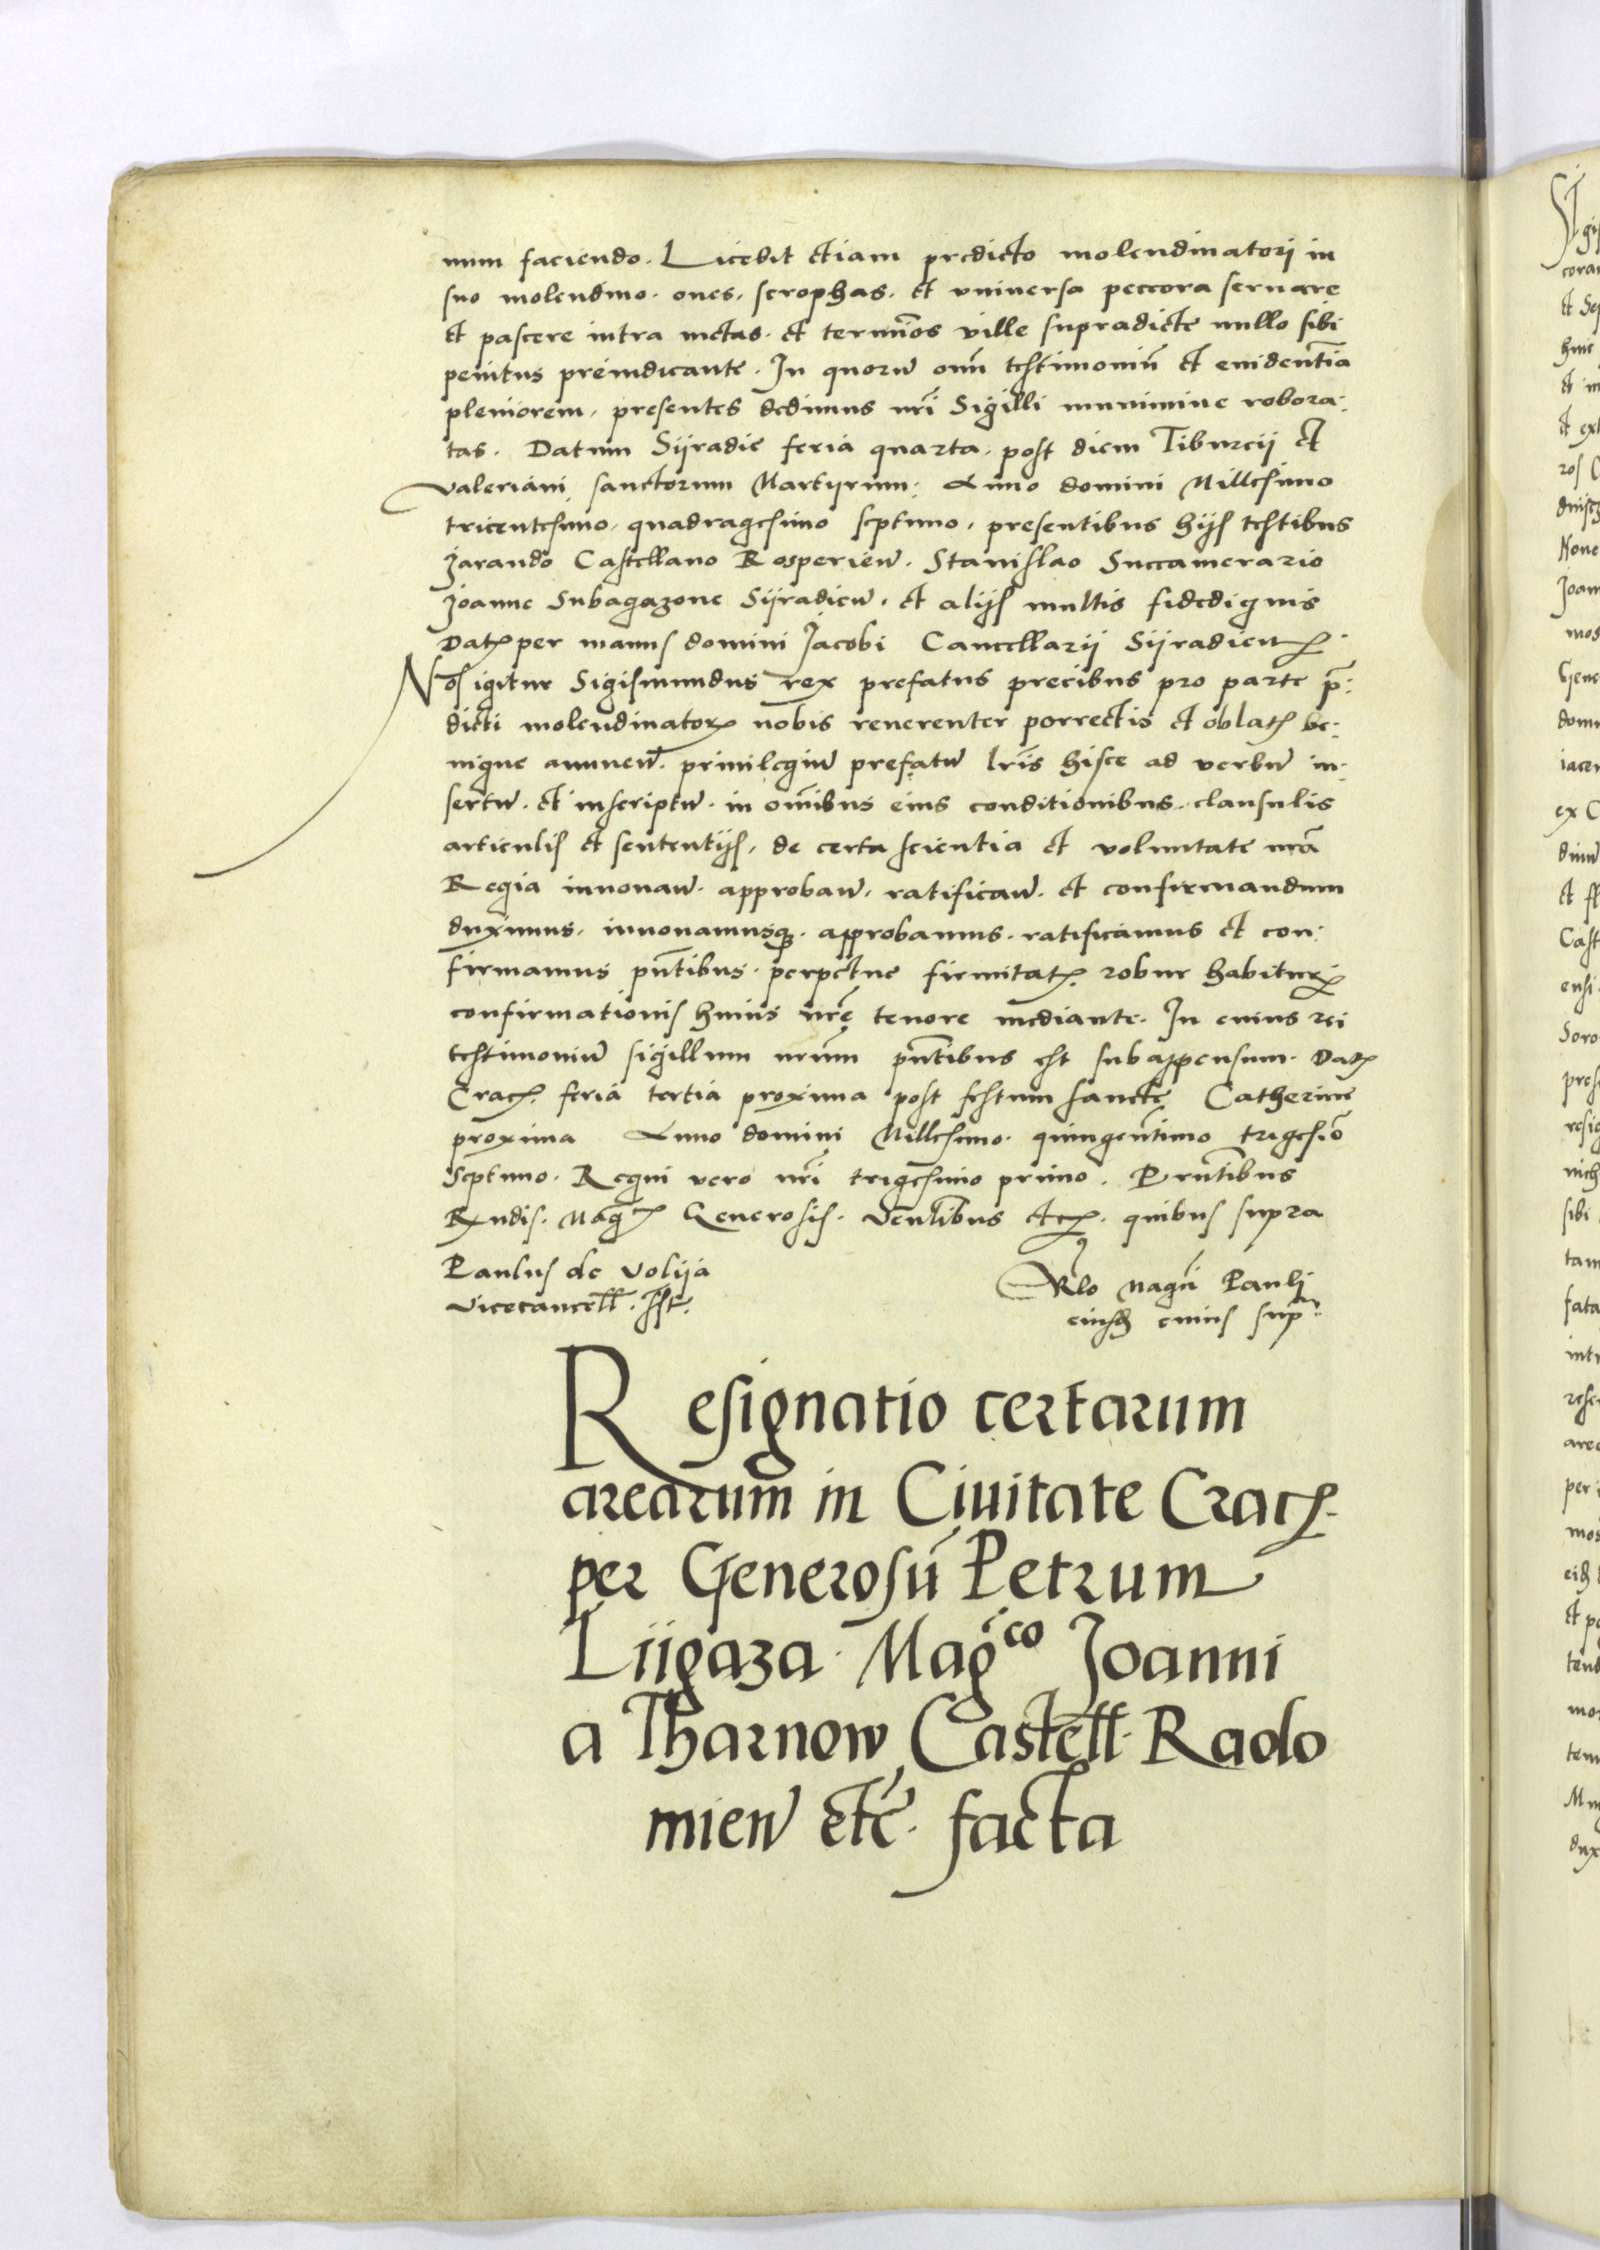 num faciendo. Licebit etiam predicto molendinatori in
suo molendino. oues, scrophas. et vniuersa peccora seruare
et pascere intra metas. et termīos ville supradicte nullo sibi
penitus preiudicante. In quorū oīm testimoniū et euidentiā
pleniorem, presentes dedimus nr̄i Sigilli munimine robora-
tas. Datum Sijradie feria quarta post diem Tiburcij et
Valeriani sanctorum Martyrum: Anno domini Millesimo
tricentesimo, quadragesimo septimo, presentibus hijs testibus
Jarando Castellano Rosperien̄. Stanislao Succamerario
Joanne Subagazone Sijradien̄. et alijs multis fidedignis
Datꝭ per manus domini Jacobi Cancellarij Sijradienꝭ.
Nos igitur Sigismundus rex prefatus precibus pro parte p̄-
dicti molendinatorꝭ nobis reuerenter porrectis et oblatꝭ be-
nigne annuen̄. priuilegiū prefatū lr̄is hisce ad verbū in-
sertū. et inscriptū. in oīnibus eius conditionibus. clausulis
articulis et sententijs, de certa scientia et voluntate nr̄a
Regia innouan̄. approban̄. ratifican̄. et confirmandum
duximus, innouamusqꝫ. approbamus. ratificamus et con-
firmamus pn̄tibus. perpetue firmitatꝭ. robur habiturꝭ
confirmationis huius nr̄ę tenore mediante. In cuius rei
testimoniū sigillum nr̄um pn̄tibus est subappensum. Datꝭ
Cracꝭ. feria tertia proxima post festum sanctę Catherine
proxima Anno domini Millesimo. quingentimo trigesiō
Septimo. Regni vero nr̄i trigesimo primo. Prn̄tibus
Rx̄ndis. Magꝭ Generosis. Ven̄libus etcꝭ. quibus supra
Paulus de Volija
Vicecancell̄. sst.
Rlo Magci Pauli
eiusdꝫ cuius supra
Resignatio certarum
arearum in Ciuitate Cracꝭ.
per Generosū Petrum
Lijgaza. Magco Joanni
a Tharnow Castell̄. Rado
mien̄ etc̄. facta